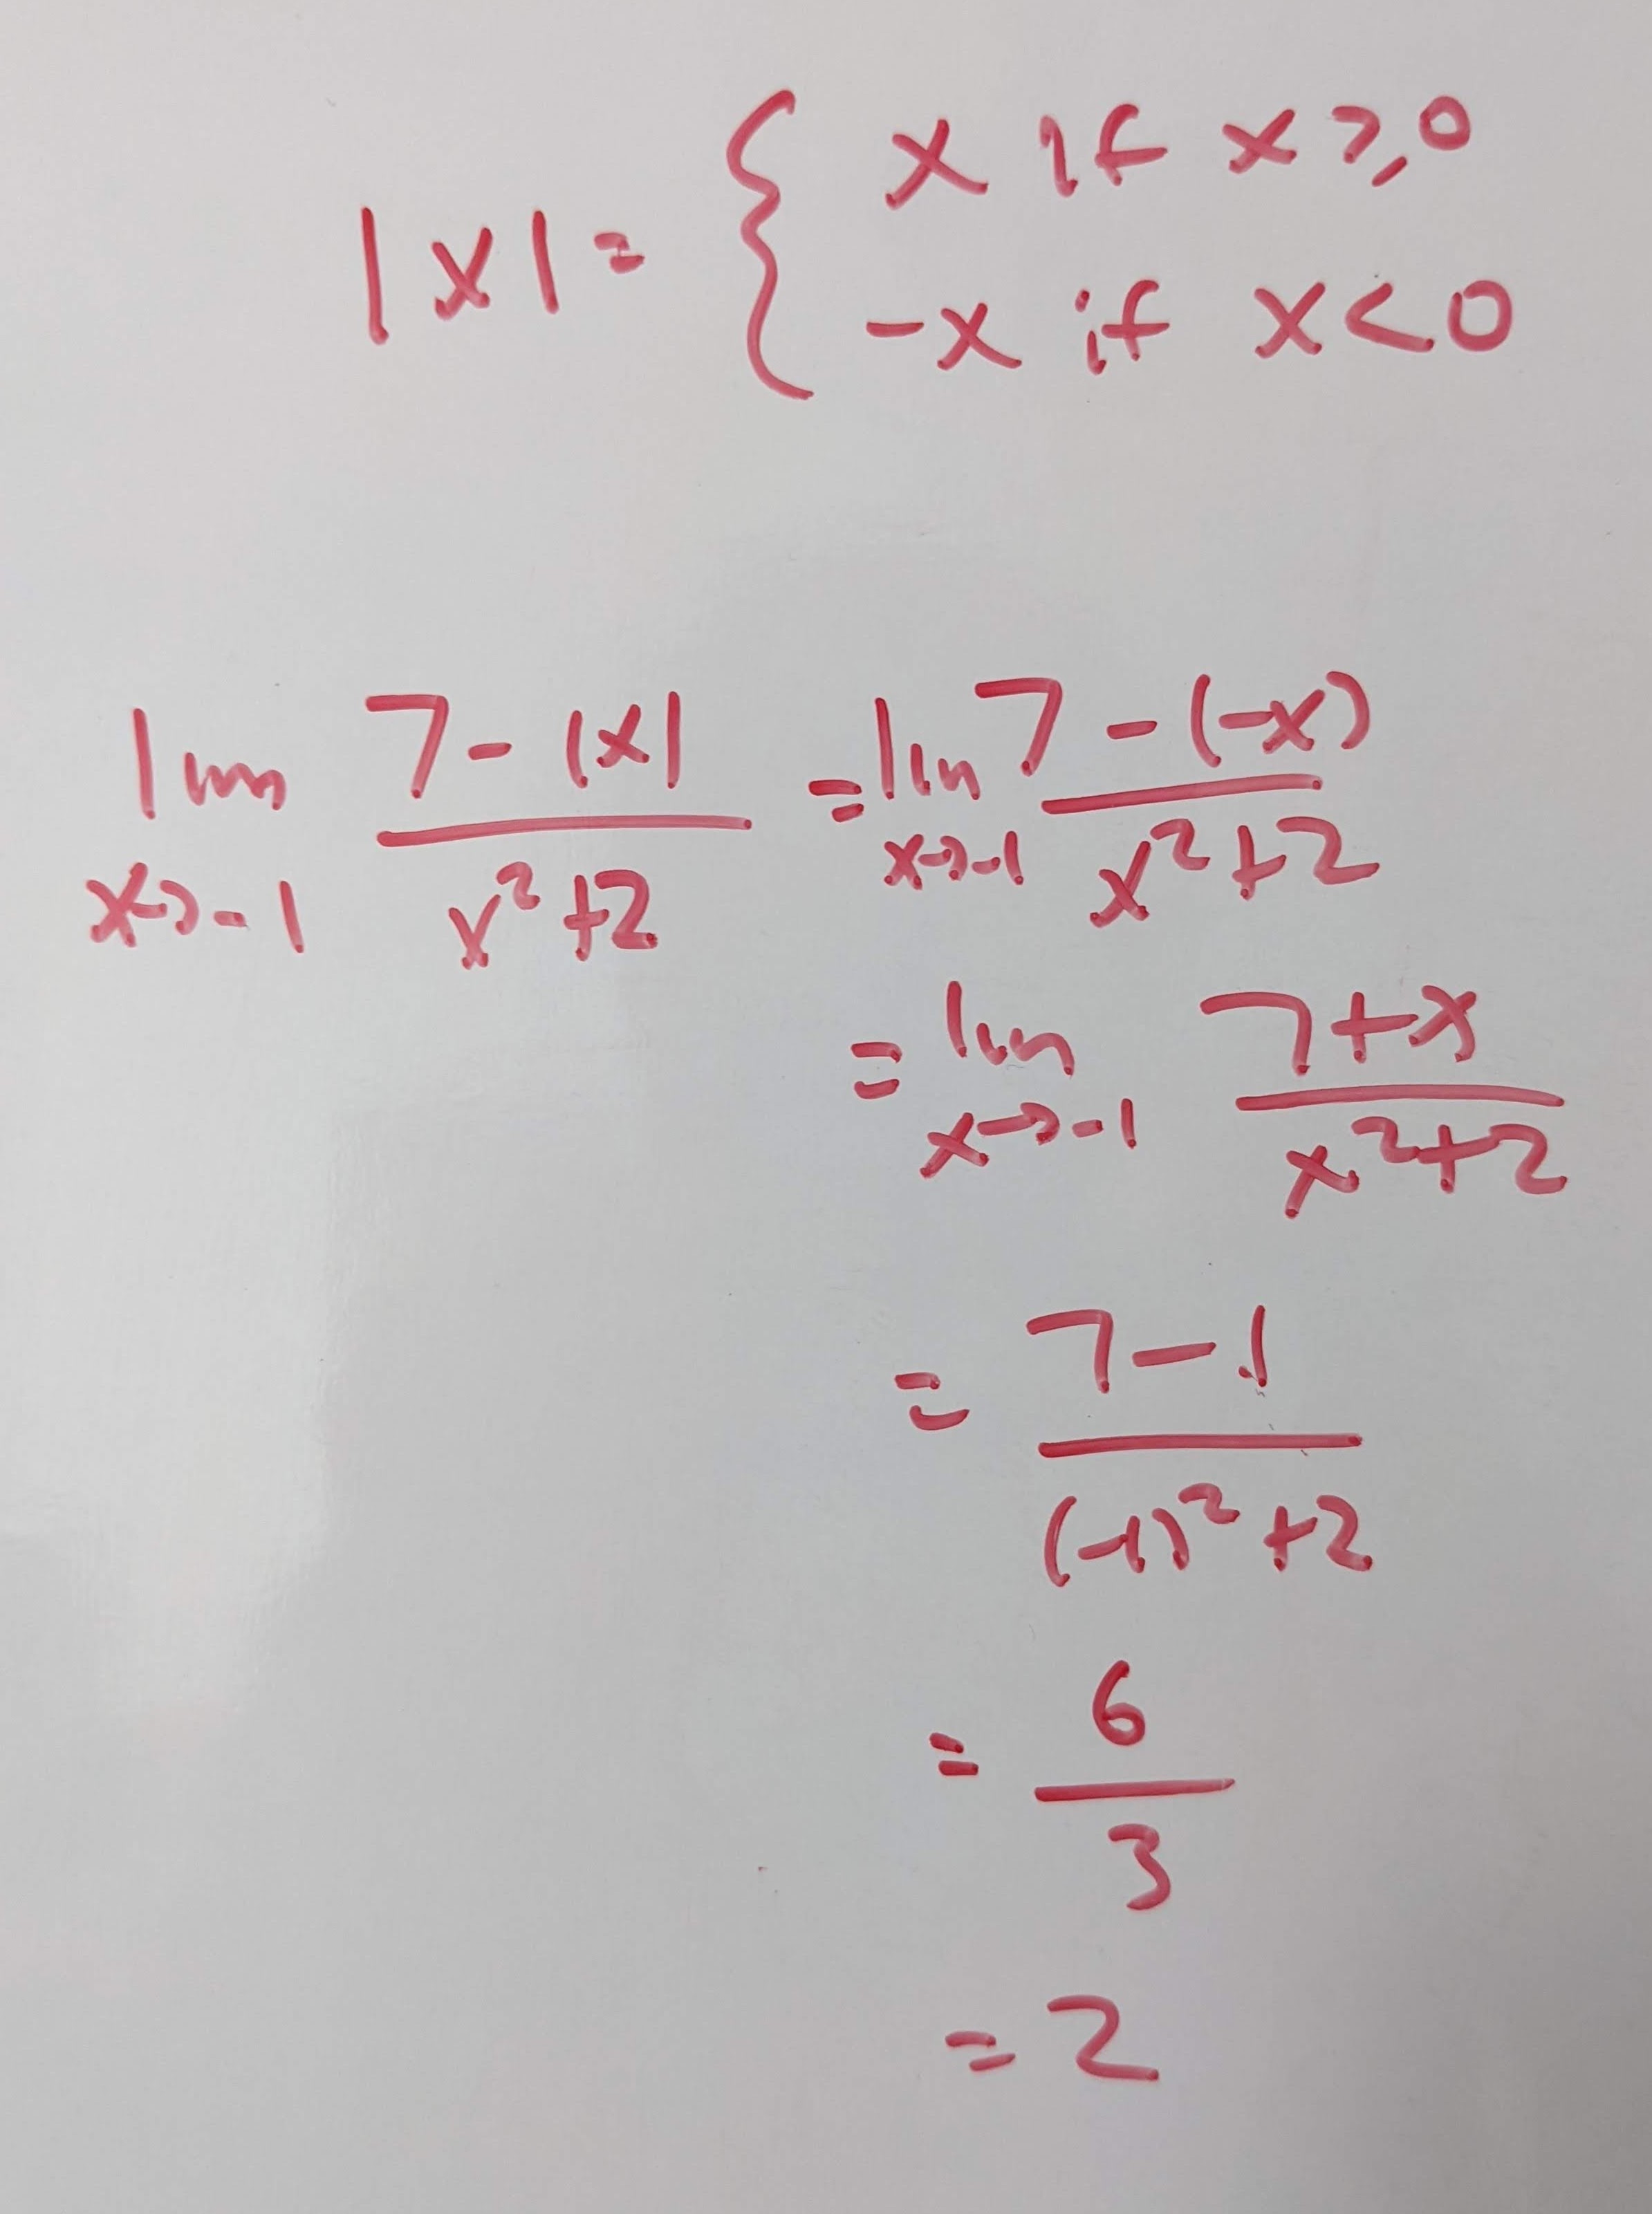 |x| = { x if x ≥ 0
-x if x < 0
lim x→-1 (7 - |x|)/(x² + 2) = lim x→-1 (7 - (-x))/(x² + 2)
= lim x→-1 (7 + x)/(x² + 2)
= (7 - 1)/((-1)² + 2)
= 6/3
= 2